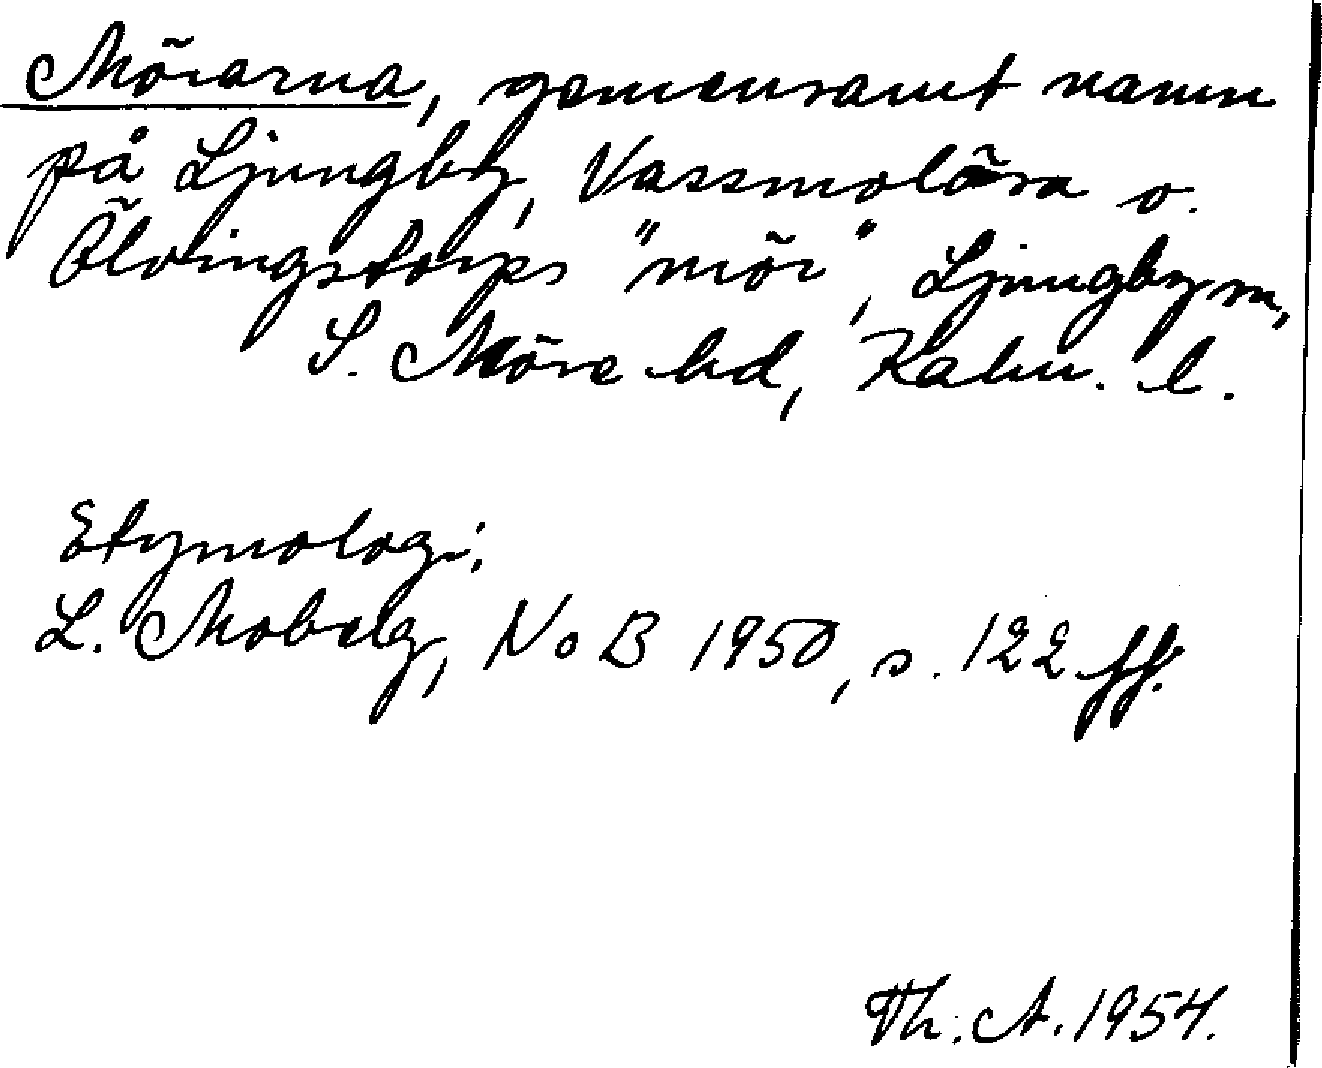 Mörarna, gemensamt namn
på Ljungby, Vassmolösa o.
Ölvingstorps "mör", Ljungby sn,
S. Möre hd, Kalm. l.
Etymologi:
L. Moberg, NoB 1950, s. 122 ff.
Th. A. 1954.